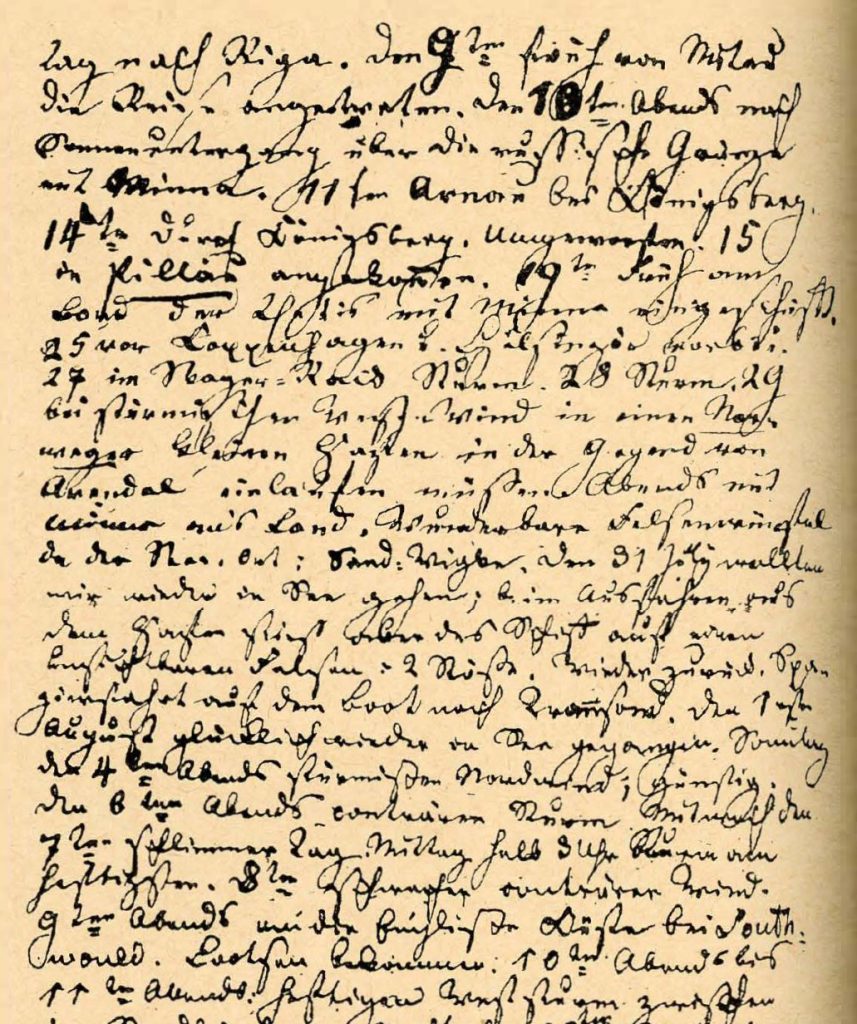 tag nach Riga. Den 9ten früh von Mitau
die Reise angetreten. Den 10ten Abends nach
Sonnenuntergang über die russische Grenze
mit Minna. 11ten Arnau bei Königsberg.
14ten durch Königsberg. Umgeworfen. 15
in Pillau angekommen. 19ten Früh am
Bord der Thetis mit Minna eingeschifft.
25 vor Koppenhagen u. Helsingör vorbei.
27 im Skager=Rack Sturm. 28 Sturm. 29
bei stürmischen West-Wind in einen Nor-
weger kleinen Hafen in der Gegend von
Arendal einlaufen müssen. Abends mit
Minna ans Land. Wunderbare Felsen
in der See. Ort: Sand=Wigke. Den 31 July wollten
wir wieder in See gehen; beim Ausfahren aus
dem Hafen stieß aber das Schiff auf einen
unsichtbaren Felsen: 2 Stöße. Wieder zurück. Spa-
zierfahrt auf dem Boot nach Tromsond. Den 1sten
August glücklich wieder in See gegangen. Sonntag
den 4ten Abends stürmischen Nordwind; günstig.
Den 6ten Abends conträren Sturm. Mittwoch den
7ten schlimmer Tag. Mittag halb 3 Uhr Sturm am
heftigsten. 8ten conträrer Wind.
9ten Abends an die englische Küste bei South-
would. Lootsen bekommen. 10ten Abends bis
11ten Abends: heftigen Weststurm zwischen